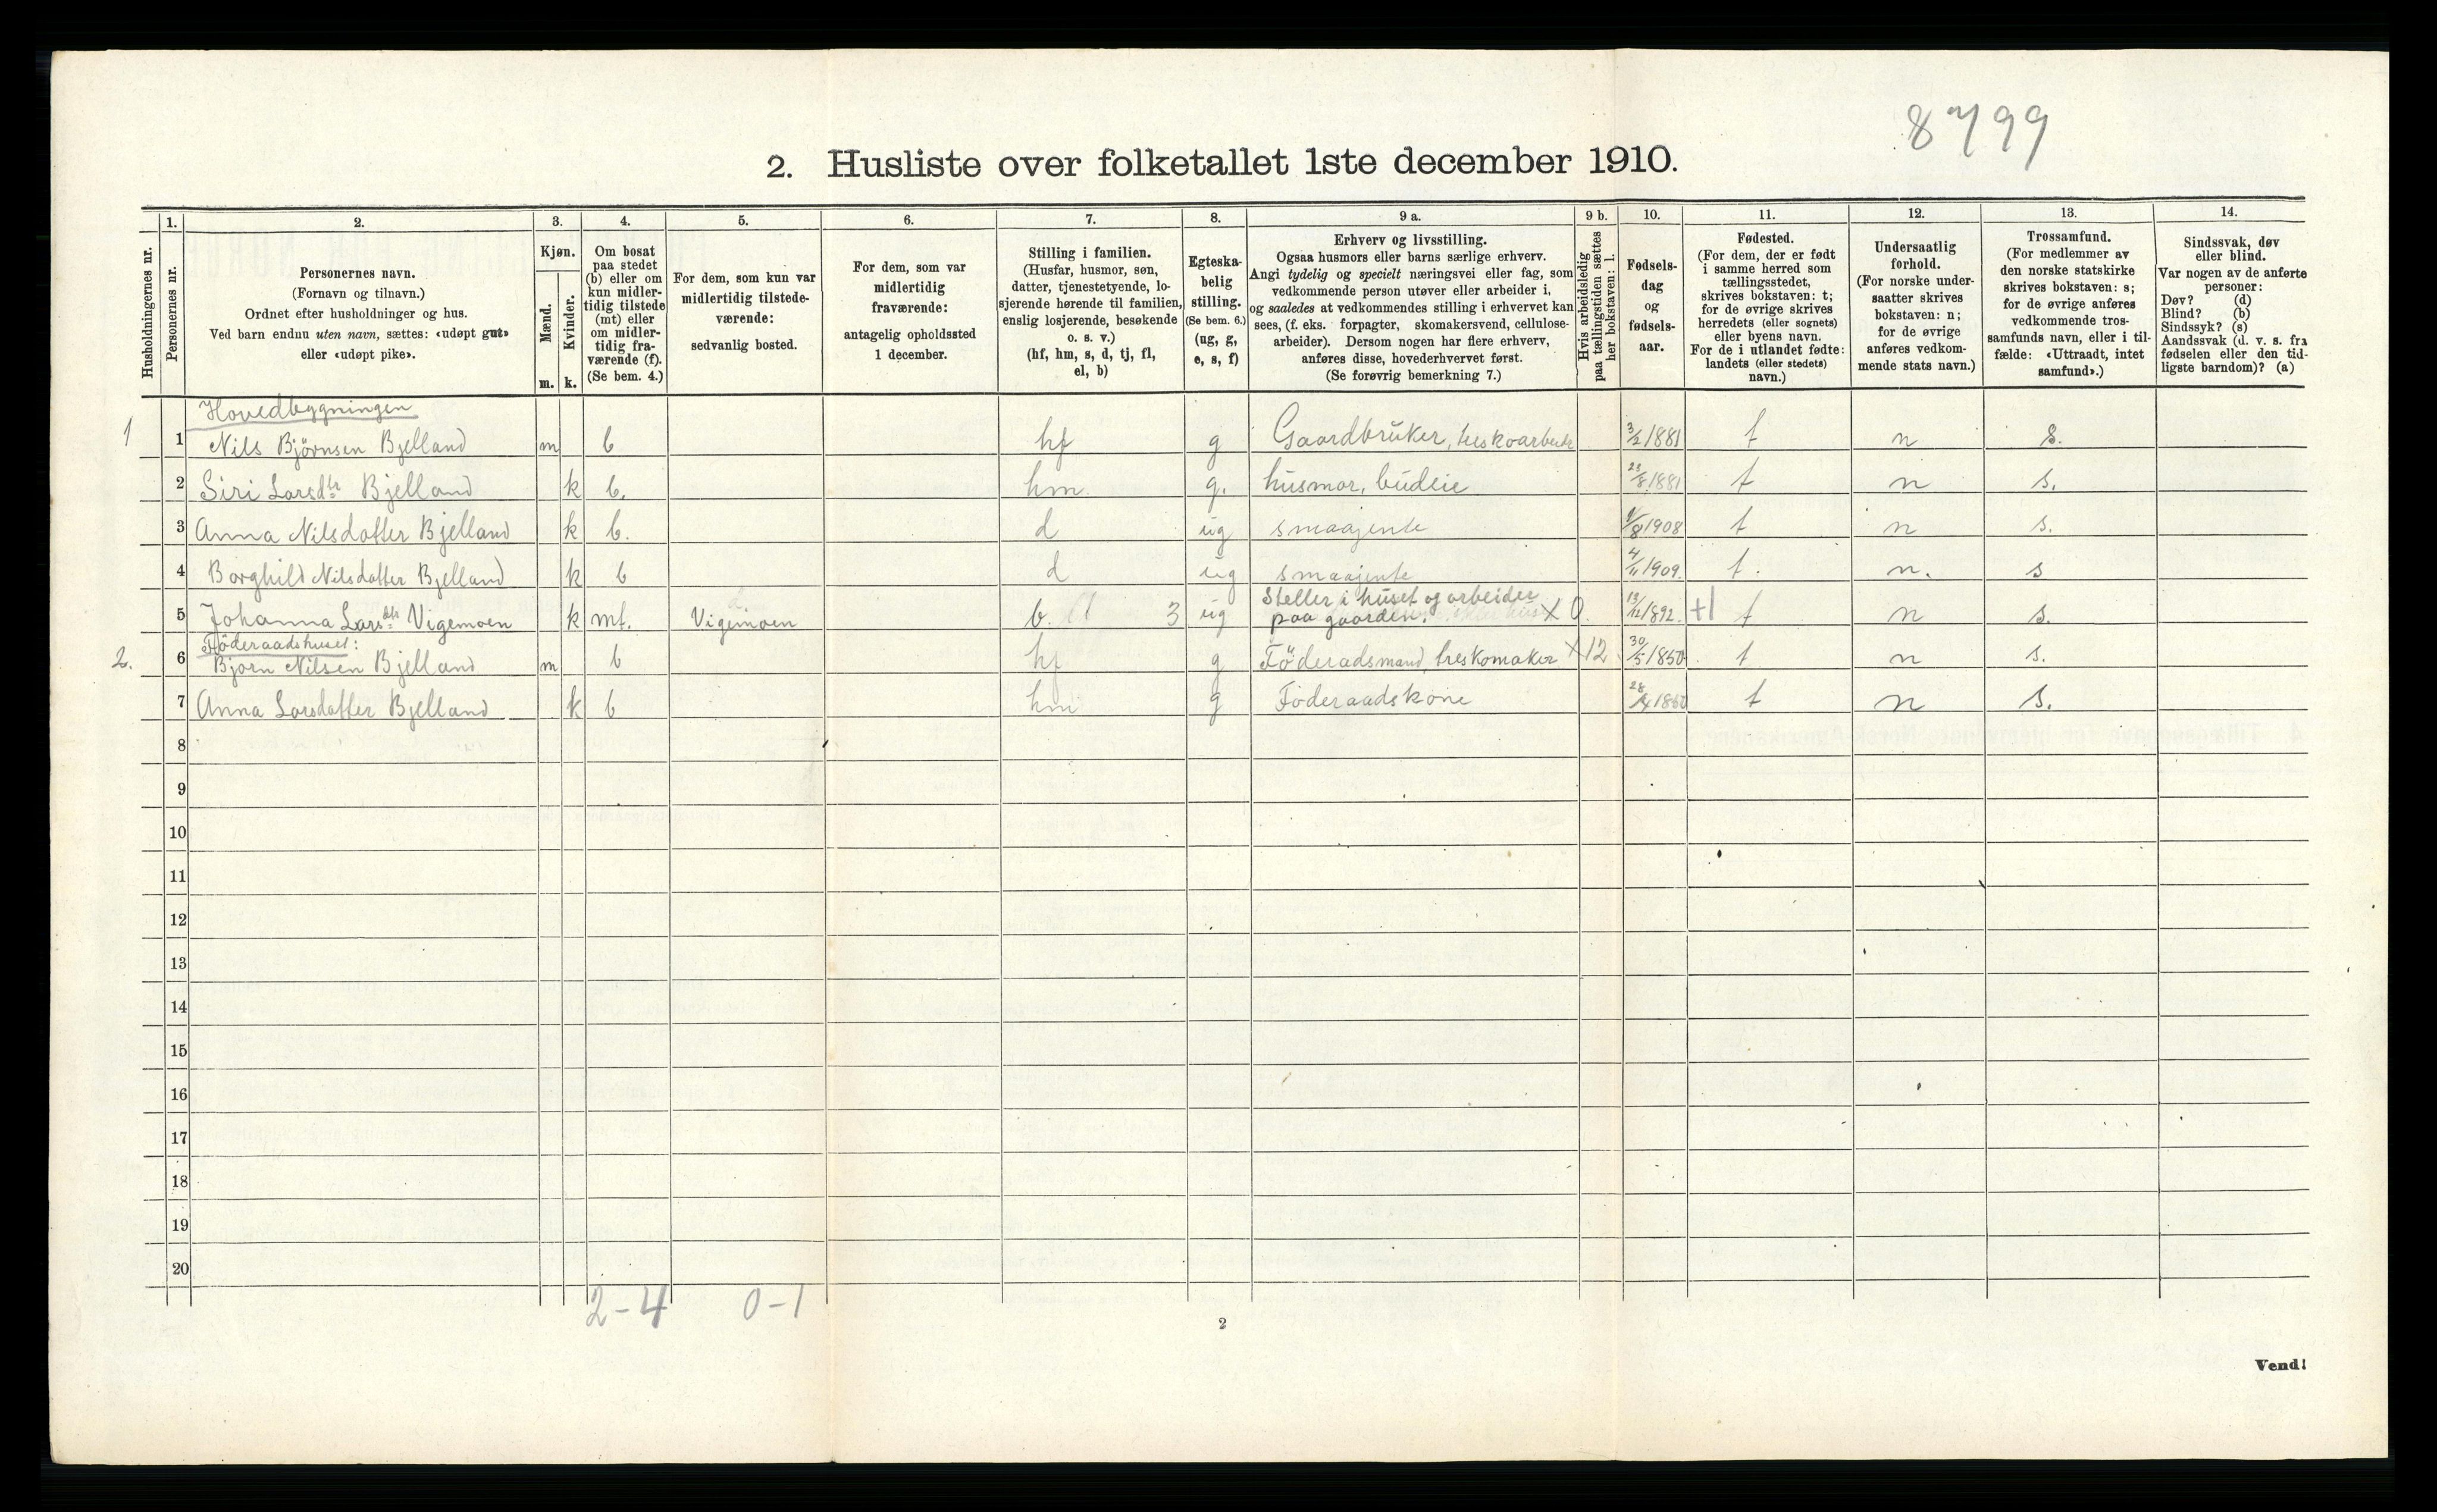 8799
2. Husliste over folketallet 1ste december 1910.
1. 2. 3. 4. 5. 6. 7. 8. 9 a. 9 b. 10. 11. 12. 13. 14.
Husholdningernes nr.
Personernes nr.
Personernes navn.
(Fornavn og tilnavn.)
Ordnet efter husholdninger og hus.
Ved barn endnu uten navn, sættes: «udøpt gut»
eller «udøpt pike».
Kjøn.
Mænd.
Kvinder.
m. k.
Om bosat
paa stedet
(b) eller om
kun midler-
tidig tilstede
(mt) eller
om midler-
tidig fra-
værende (f).
(Se bem. 4.)
For dem, som kun var
midlertidig tilstede-
værende:
sedvanlig bosted.
For dem, som var
midlertidig
fraværende:
antagelig opholdssted
1 december.
Stilling i familien.
(Husfar, husmor, søn,
datter, tjenestetyende, lo-
sjerende hørende til familien,
enslig losjerende, besøkende
o. s. v.)
(hf, hm, s, d, tj, fl,
el, b)
Egteska-
belig
stilling.
(Se bem. 6.)
(ug, g,
e, s, f)
Erhverv og livsstilling.
Ogsaa husmors eller barns særlige erhverv.
Angi tydelig og specielt næringsvei eller fag, som
vedkommende person utøver eller arbeider i,
og saaledes at vedkommendes stilling i erhvervet kan
sees, (f. eks. forpagter, skomakersvend, cellulose-
arbeider). Dersom nogen har flere erhverv,
anføres disse, hovederhvervet først.
(Se forøvrig bemerkning 7.)
Hvis arbeidsledig
paa tællingstiden sættes
her bokstaven: l.
Fødsels-
dag
og
fødsels-
aar.
Fødested.
(For dem, der er født
i samme herred som
tællingsstedet,
skrives bokstaven: t;
for de øvrige skrives
herredets (eller sognets)
eller byens navn.
For de i utlandet fødte:
landets (eller stedets)
navn.)
Undersaatlig
forhold.
(For norske under-
saatter skrives
bokstaven: n;
for de øvrige
anføres vedkom-
mende stats navn.)
Trossamfund.
(For medlemmer av
den norske statskirke
skrives bokstaven: s;
for de øvrige anføres
vedkommende tros-
samfunds navn, eller i til-
fælde: «Uttraadt, intet
samfund».)
Sindssvak, døv
eller blind.
Var nogen av de anførte
personer:
Døv? (d)
Blind? (b)
Sindssyk? (s)
Aandssvak (d. v. s. fra
fødselen eller den tid-
ligste barndom)? (a)
Hovedbygningen
1 1 Nils Björnsen Bjelland m b hf g Gaardbruker, treskoarbeide 3/2 1881 t n s.
2 Siri Larsdtr Bjelland k b. hm g. husmor, budeie 23/8 1881 t n s.
3 Anna Nilsdatter Bjelland k b. d ug smaajente 1/8 1908 t n s.
4 Borghild Nilsdatter Bjelland k b d ug smaajente 4/11 1909. t. n. s
5 Johanna Larsdtr Vigemoen k mt. Vigemoen b. 3 ug Steller i huset og arbeider
paa gaarden. x 0 13/12 1892. +1 t n s.
Föderaadshuset:
2. 6 Bjorn Nilsen Bjelland m b hf g Föderadsmand, treskomaker x 12 30/5 1850 t n s.
7 Anna Larsdatter Bjelland k b hm g Föderaadskone 28/4 1860 t n s.
8
9
10
11
12
13
14
15
16
17
18
19
20
2-4 0-1
2
Vend!